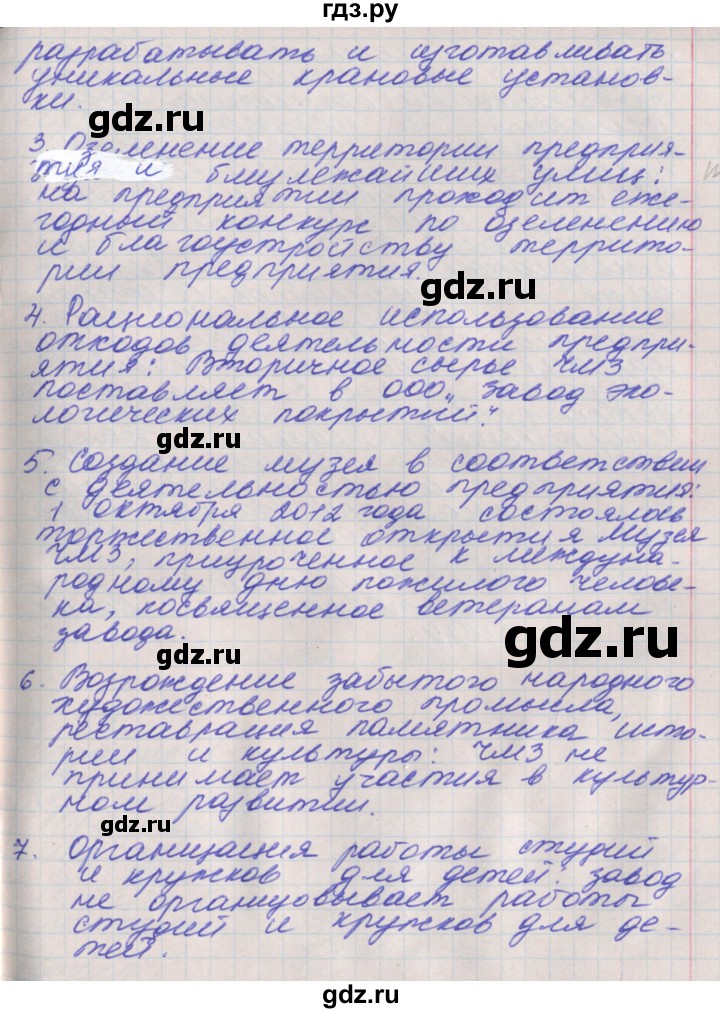 гдз.ру
разрабатывать и изготавливать
уникальные крановые установ-
ки.
gdz.ru
3. Озеленение территории предприя-
тия и близлежайших улиц:
на предприятии проходит еже-
годный конкурс по озеленению
и благоустройству террито-
рии предприятия.
gdz.ru
4. Рациональное использование
отходов деятельности предпри-
ятия: Вторичное сырье ЧМЗ
поставляет в ООО „Завод эко-
логических покрытий".
gdz.ru
5. Создание музея в соответствии
с деятельностью предприятия:
1 октября 2012 года состоялось
gdz.ru
торжественное открытия Музея
ЧМЗ, приуроченное к междуна-
родному дню пожилого челове-
ка, посвященное ветеранам
завода.
gdz.ru
gdz.ru
6. Возрождение забытого народного
художественного промысла,
реставрация памятника исто-
рии и культуры: ЧМЗ не
принимает участия в культур-
ном развитии.
gdz.ru
7. Организация работы студий
и кружков для детей: завод
не организовывает работы
студий и кружков для де-
тей.
gdz.ru
gdz.ru